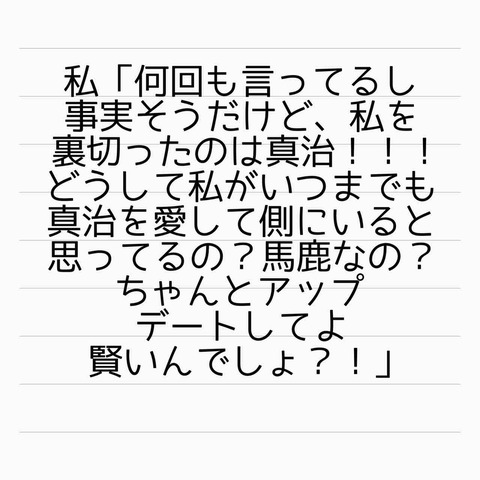 私「何回も言ってるし
事実そうだけど、私を
裏切ったのは真治！！！
どうして私がいつまでも
真治を愛して側にいると
思ってるの？馬鹿なの？
ちゃんとアップ
デートしてよ
賢いんでしょ？！」